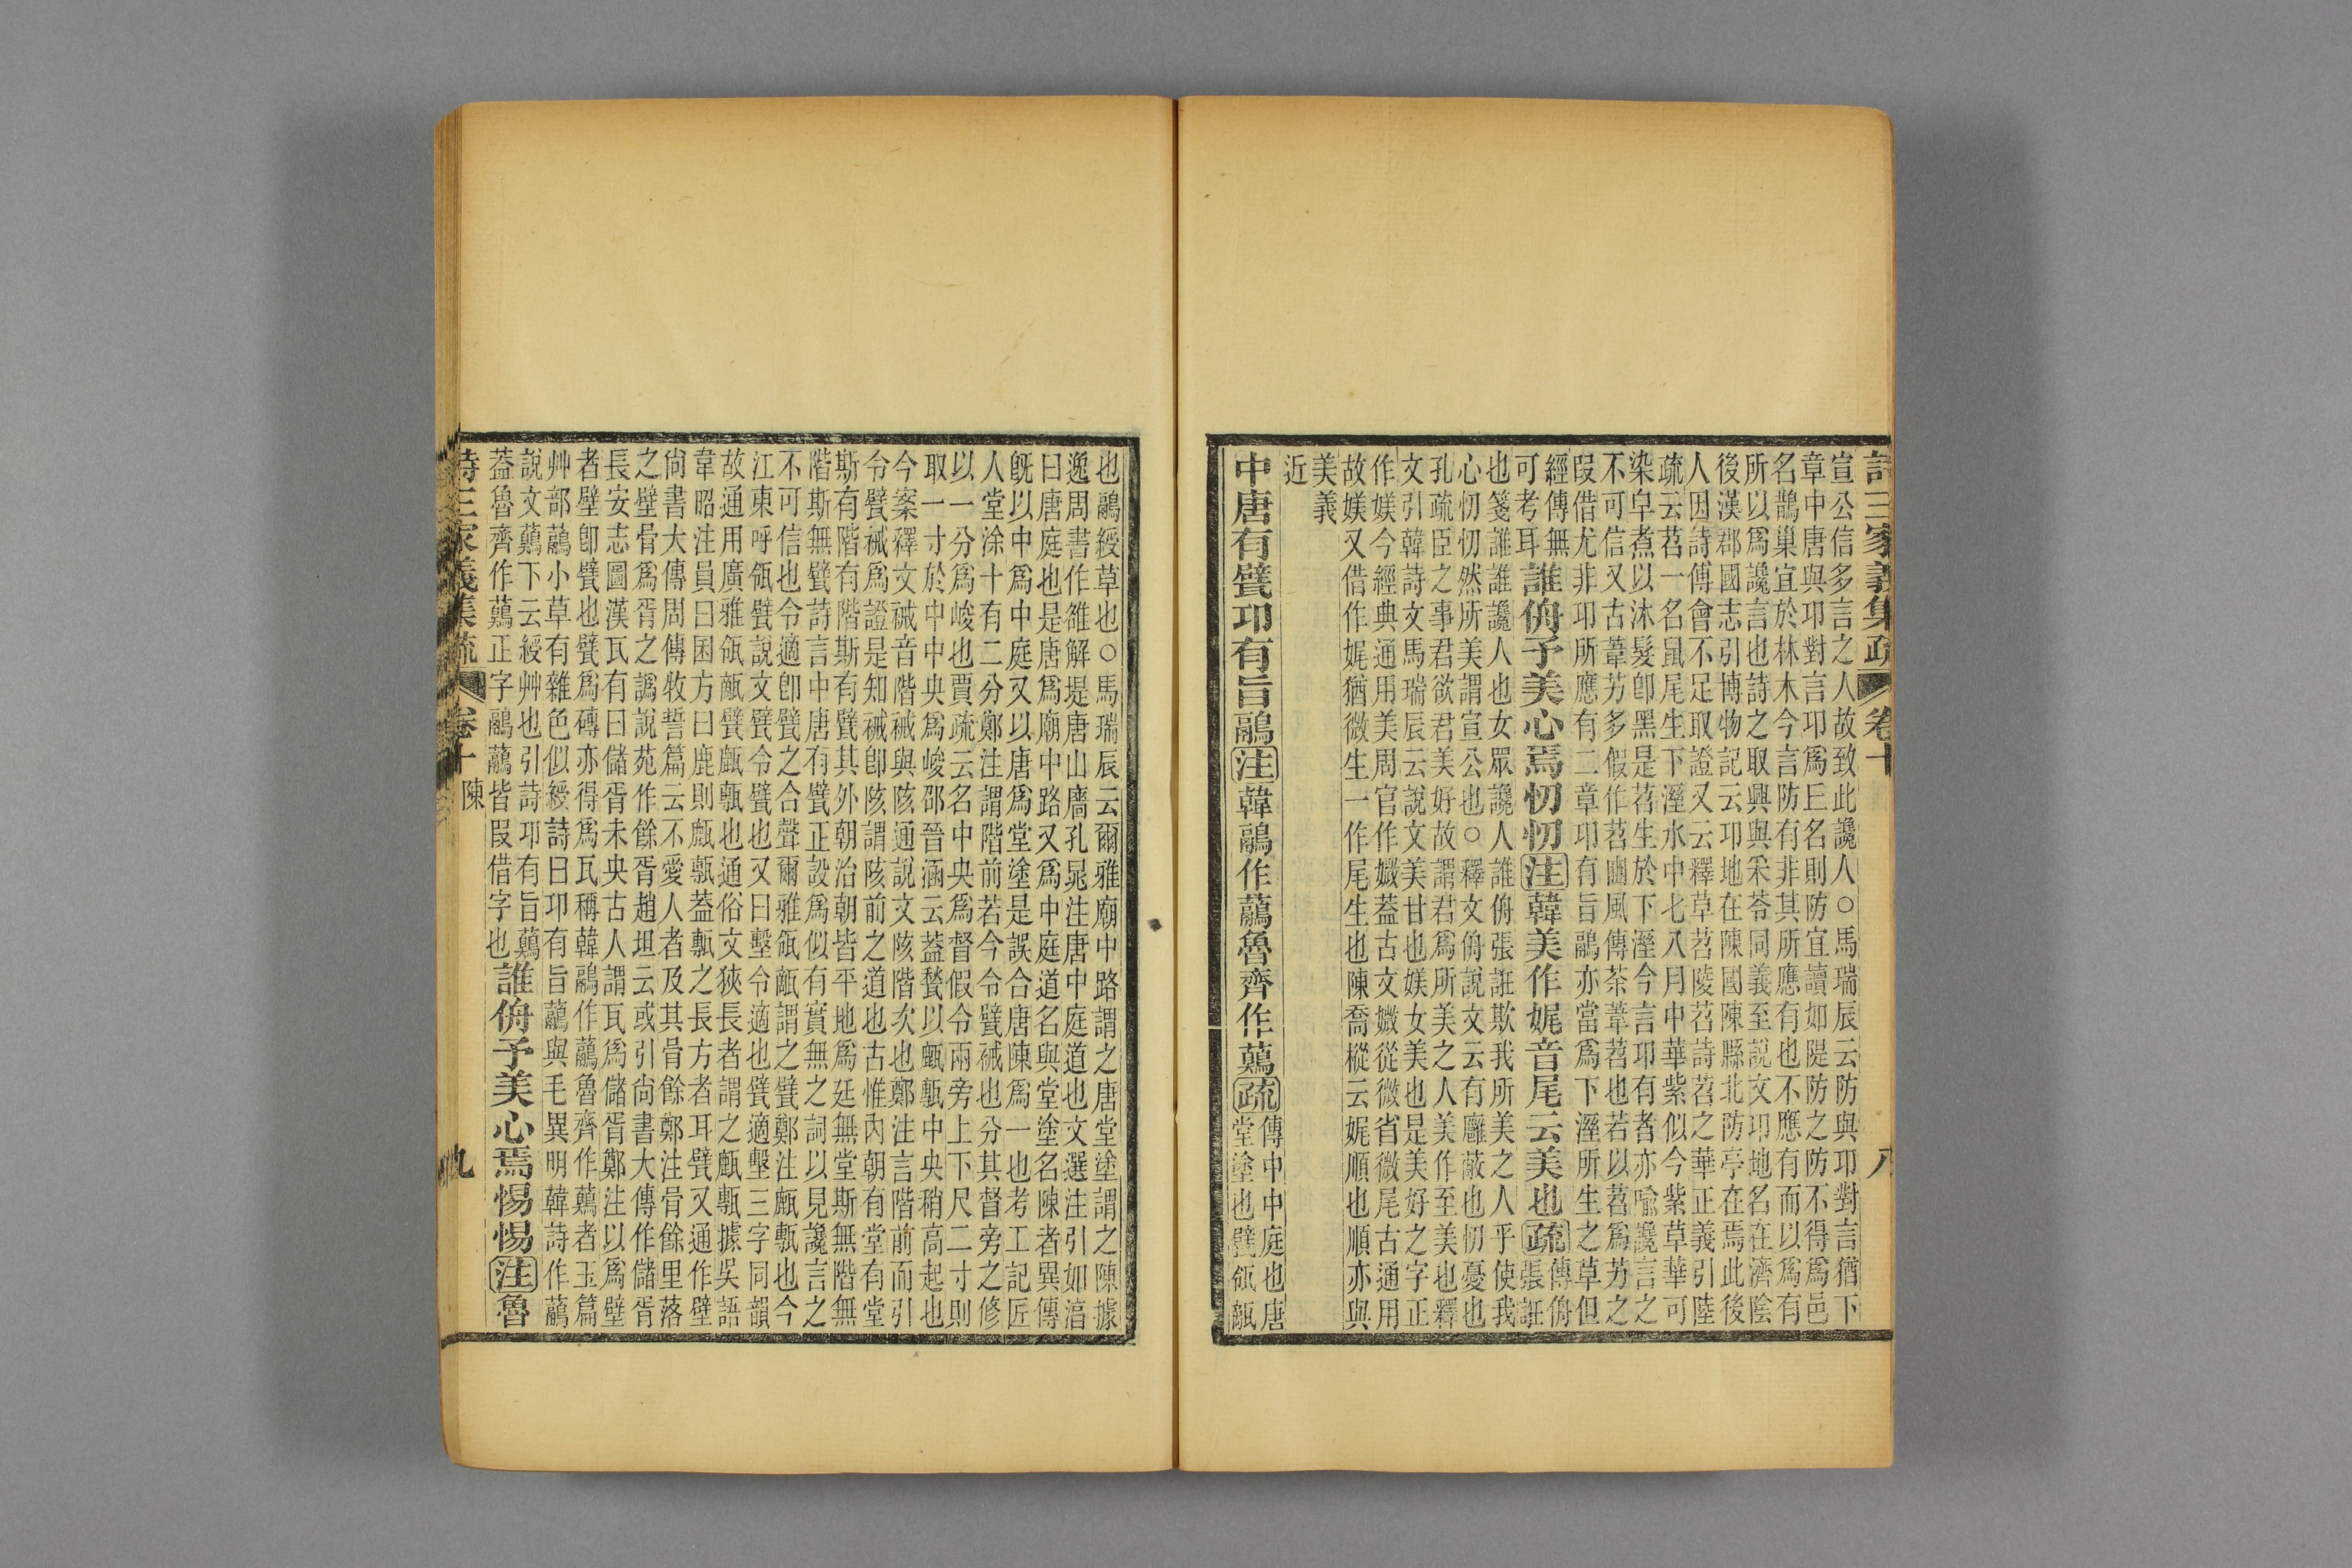 詩三家義集疏 卷十 八
宣公信多言之人故致此讒人○馬瑞辰云防與邛對言猶下
章中唐與邛對言邛爲㠯名則防宜讀如隄防之防不得爲邑
名鵲巢宜於林木今言防有非其所應有也不應有而以爲有
所以爲讒言也詩之取興與采苓同義至說文邛地名在濟陰
後漢郡國志引博物記云邛地在陳國陳縣北防亭在焉此後
人因詩傅會不足取證又云釋草苕陵苕詩苕之華正義引陸
疏云苕一名鼠尾生下溼水中七八月中華紫似今紫草華可
染皁煮以沐髮卽黑是苕生於下溼今言邛有者亦喻讒言之
不可信又古葦芀多假作苕豳風傳荼葦苕也若以苕爲芀之
叚借尤非邛所應有二章邛有旨鷊亦當爲下溼所生之草但
經傳無
可考耳
誰侜予美心焉忉忉注韓美作娓音尾云美也疏
傳侜
張誑
也箋誰誰讒人也女眾讒人誰侜張誑欺我所美之人乎使我
心忉忉然所美謂宣公也○釋文侜說文云有廱蔽也忉憂也
孔疏臣之事君欲君美好故謂君爲所美之人美作至美也釋
文引韓詩文馬瑞辰云說文美甘也媄女美也是美好之字正
作媄今經典通用美周官作媺蓋古文媺從微省微尾古通用
故媄又借作娓猶微生一作尾生也陳喬樅云娓順也順亦與
美義
近
中唐有甓邛有旨鷊注韓鷊作虉魯齊作薦疏
傳中中庭也唐
堂塗也甓瓴甋
也鷊綬草也○馬瑞辰云爾雅廟中路謂之唐堂塗謂之陳據
逸周書作雒解堤唐山廧孔晁注唐中庭道也文選注引如淳
曰唐庭也是唐爲廟中路又爲中庭道名與堂塗名陳者異傳
旣以中爲中庭又以唐爲堂塗是誤合唐陳爲一也考工記匠
人堂涂十有二分鄭注謂階前若今令甓裓也分其督旁之修
以一分爲峻也賈疏云名中央爲督假令兩旁上下尺二寸則
取一寸於中中央爲峻邵晉涵云蓋甃以甎甋中央稍高起也
今案釋文裓音階裓與陔通說文陔階次也鄭注言階前而引
令甓裓爲證是知裓卽陔謂陔前之道也古惟內朝有堂有堂
斯有階有階斯有甓其外朝治朝皆平地爲廷無堂斯無階無
階斯無甓詩言中唐有甓正設爲似有實無之詞以見讒言之
不可信也令適卽甓之合聲爾雅瓴甋謂之甓鄭注㼾甎也今
江東呼瓴甓說文甓令甓也又曰墼令適也甓適墼三字同韻
故通用廣雅瓴甋甓㼾甎也通俗文狹長者謂之㼾甎據吳語
韋昭注員曰囷方曰鹿則㼾甎蓋甎之長方者耳甓又通作壁
尙書大傳周傳牧誓篇云不愛人者及其骨餘鄭注骨餘里落
之壁骨爲胥之譌說苑作餘胥趙坦云或引尙書大傳作儲胥
長安志圖漢瓦有曰儲胥未央古人謂瓦爲儲胥鄭注以爲壁
者壁卽甓也甓爲磚亦得爲瓦稱韓鷊作虉魯齊作薦者玉篇
艸部虉小草有雜色似綬詩曰邛有旨虉與毛異明韓詩作虉
說文薦下云綬艸也引詩邛有旨薦
蓋魯齊作薦正字鷊虉皆叚借字也
誰侜予美心焉惕惕注魯
詩三家義集疏 卷十 陳 九